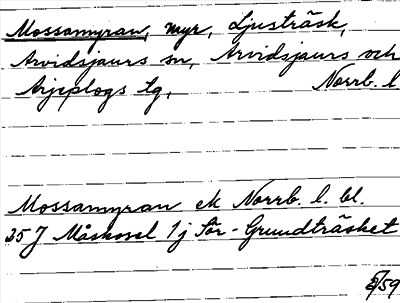 Mossamyran, myr, Ljusträsk,
Arvidsjaurs sn, Arvidsjaurs och
Arjeplogs tg, Norrb. l
Mossamyran ek Norrb. l. bl.
25 J Måskosel 1 j Sör-Grundträsket
/59